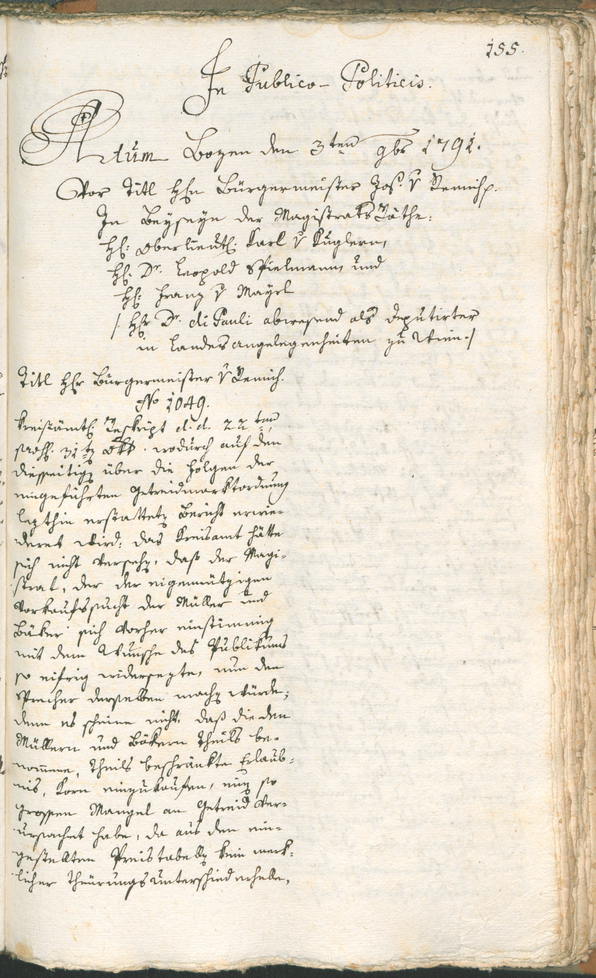 155.
In Publico-Politicis.
Actum Bozen den 3ten 9br 1791.
Vor Titl Hhn Bürgermeister Jos. v Remich.
In Beyseyn der Magistrats Räthe:
Hh: Oberlieut: Karl v Kuglern,
Hh: Dr. Leopold Spielmann, und
Hh: Franz v Mayrl
/: Hh: Dr. di Pauli abwesend als Deputirter
in Landesangelegenheiten zu Wien :/
Titl Hhr Bürgermeister v Remich.
No 1049.
Kreisämtl: Reskript d: d. 22ten
31ten Okt. wodurch auf den
diesseitig über die Folgen der
eingeführten Getreidmarktordnung
lezthin erstatteten Bericht erwie-
dert wird: das Kreisamt hätte
sich nicht versehen, daß der Magi-
strat, der der eigennützigen
Vorkaufssucht der Müller und
Bäker sich vorher einstimmig
mit dem Wunsche des Publikums
so eifrig widersezte, nun den
Sprecher derselben machen würde;
denn es scheine nicht, daß die den
Müllern und Bäkern theils be-
nommene, theils beschränkte Erlaub-
nis, Korn einzukaufen, einen so
grossen Mangel an Getreid ver-
ursachet habe, da aus den ein-
gestellten Preistabellen kein merk-
licher Theürungsunterschied erhelle,